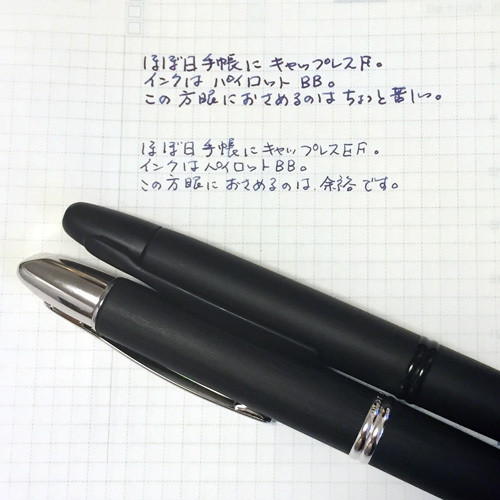 ほぼ日手帳に キャップレスF。
インクは パイロット BB。
この方眼におさめるのは ちょっと苦しい。
ほぼ日手帳に キャップレスEF。
インクは パイロットBB。
この方眼に おさめるのは、余裕です。